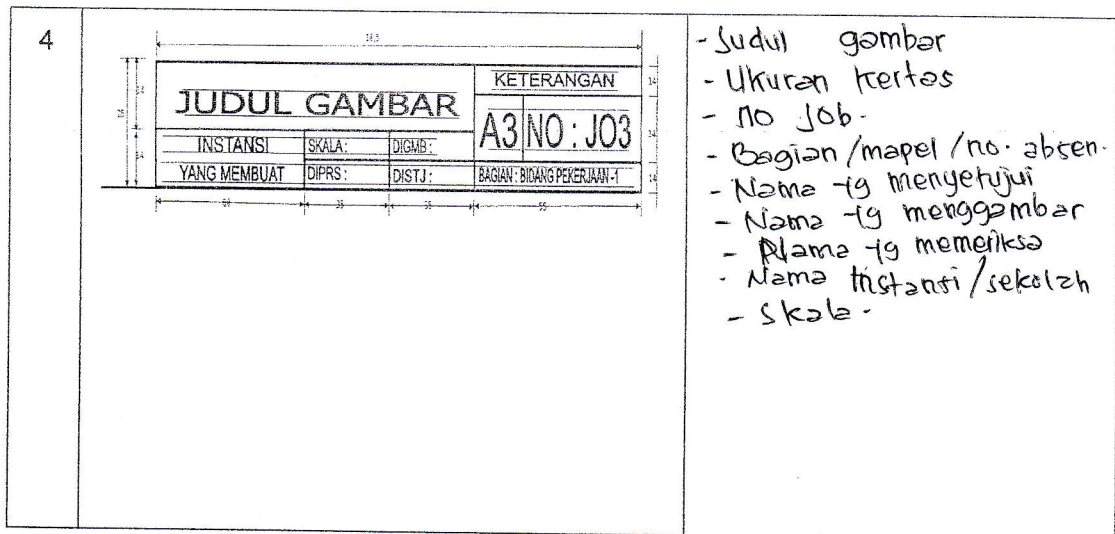 4
KETERANGAN
JUDUL GAMBAR
A3 NO : JO3
INSTANSI SKALA : DIGMB :
YANG MEMBUAT DIPRS : DISTJ : BAGIAN : BIDANG PEKERJAAN -1
55
- Judul gambar
- Ukuran kertas
- no job.
- Bagian/mapel/no. absen.
- Nama yg menyetujui
- Nama yg menggambar
- Nama yg memeriksa
- Nama Instansi/sekolah
- Skala.